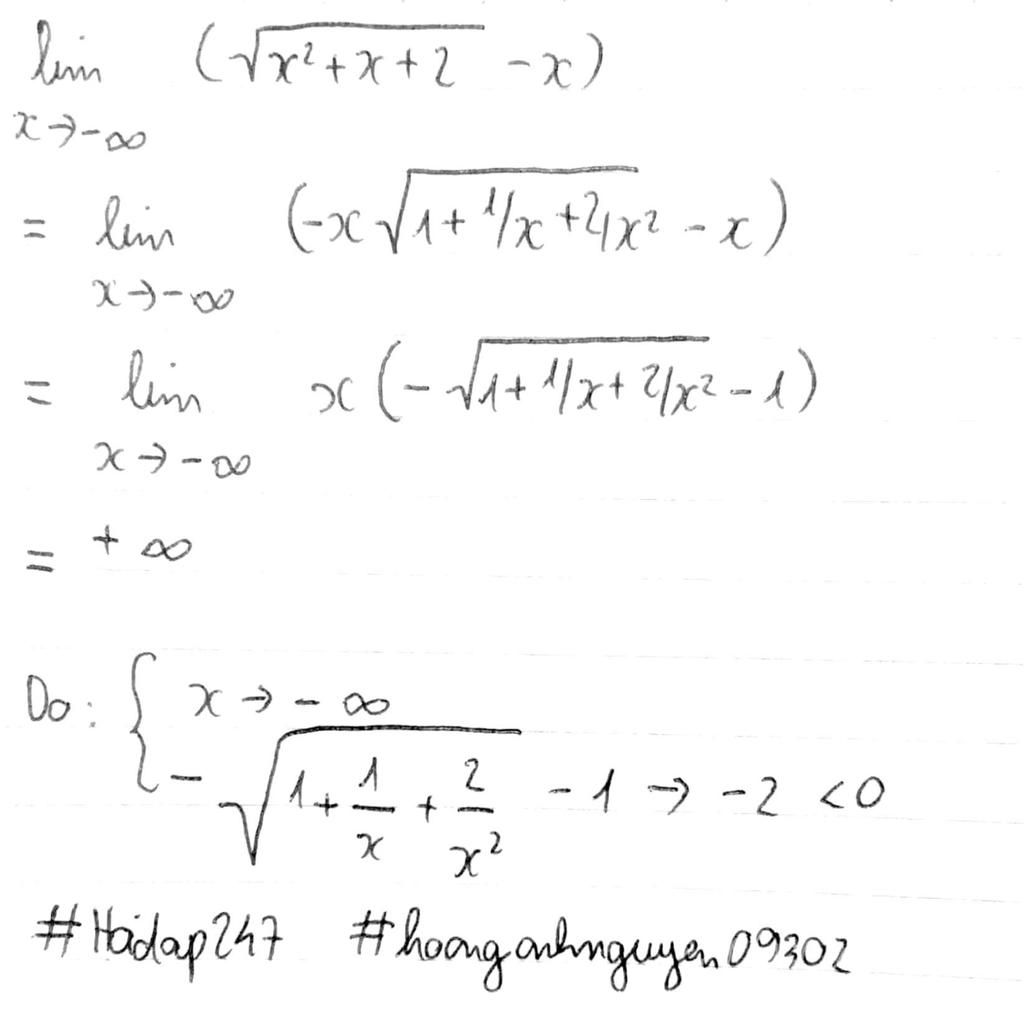 lim (√(x²+x+2) - x)
x→-∞
= lim (-x√(1+1/x+2/x²) - x)
x→-∞
= lim x(-√(1+1/x+2/x²) - 1)
x→-∞
= +∞
Do: { x→-∞
-√(1+1/x+2/x²) - 1 → -2 <0
#Hoidap247 #hoanganhnguyen09302